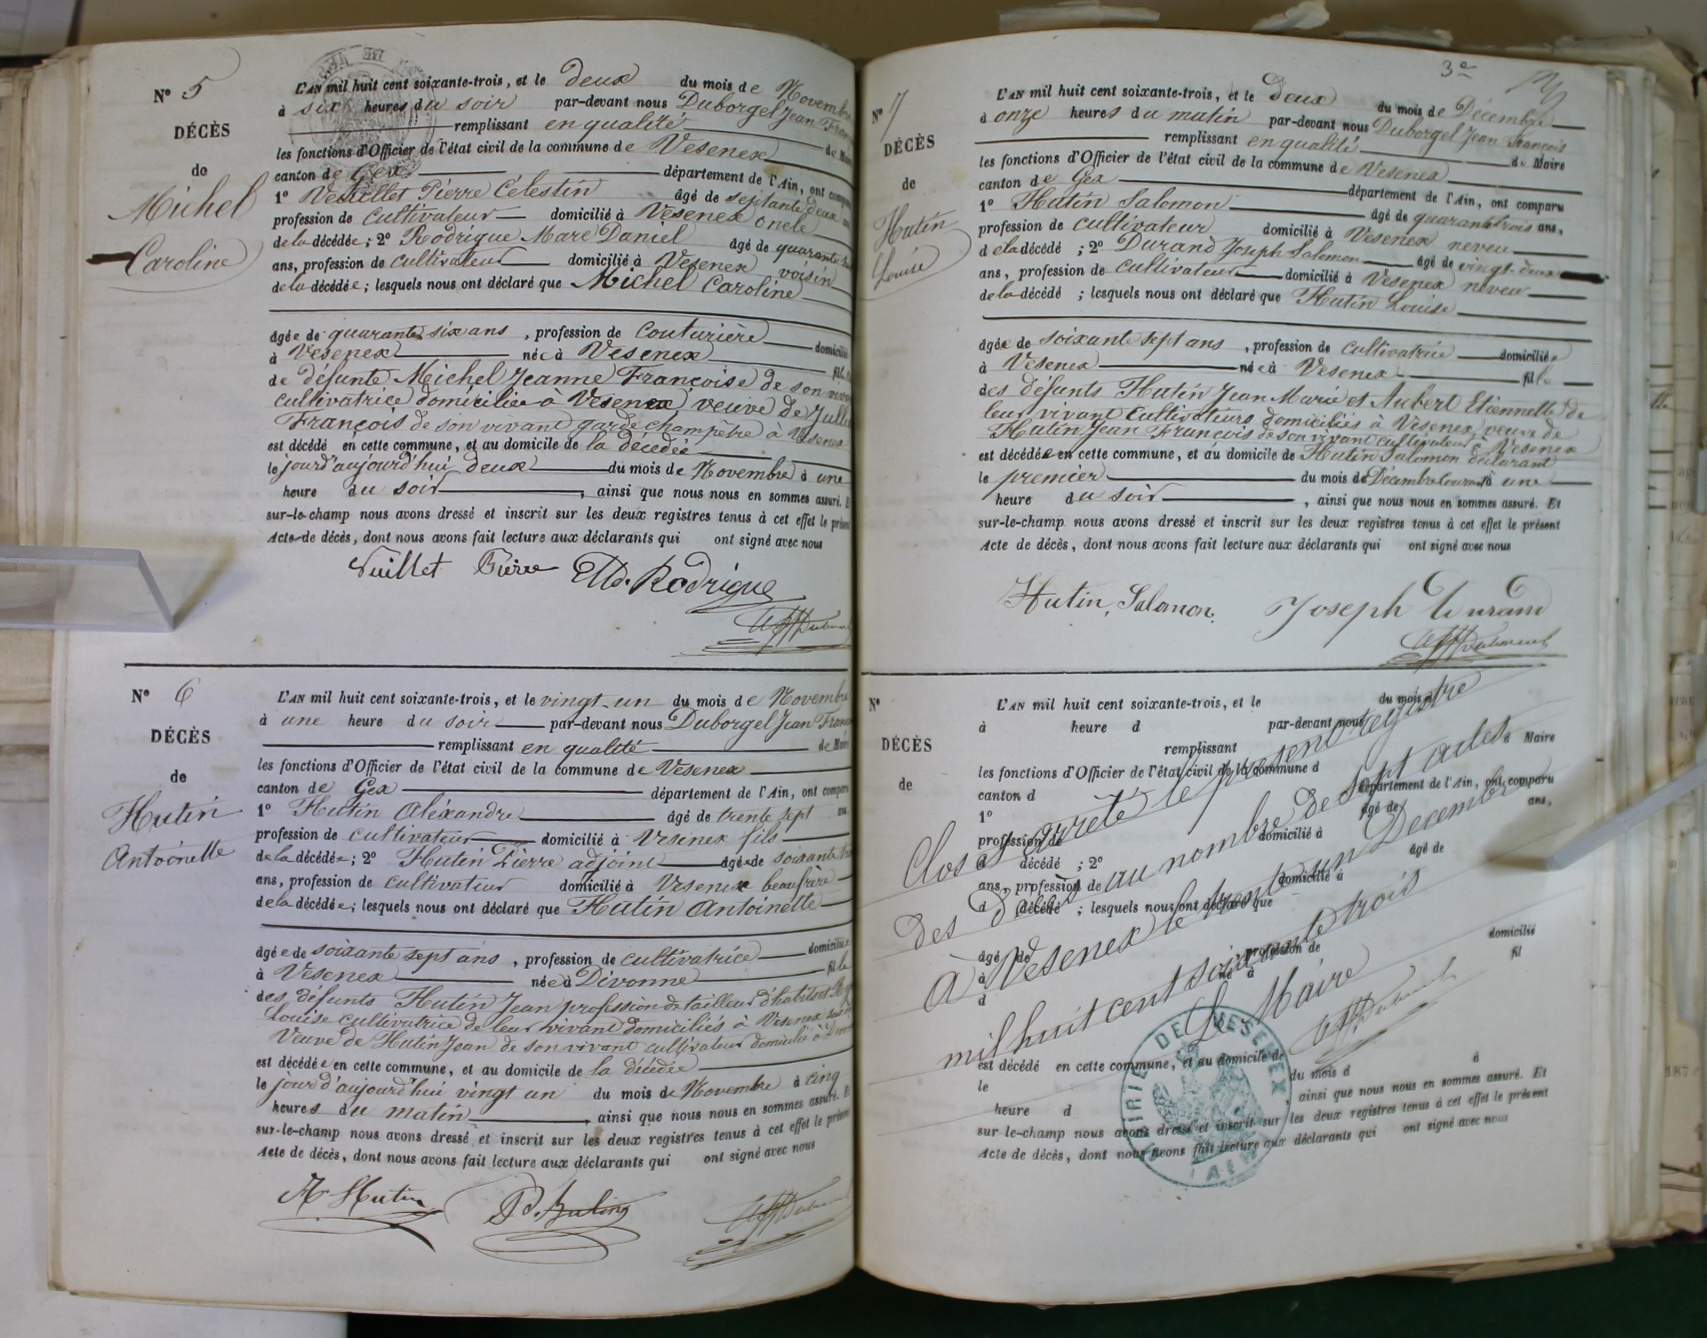 N° 5
DÉCÈS
de
Michel
Caroline
L'AN mil huit cent soixante-trois, et le deux du mois de Novembre
à six heures du soir par-devant nous Duborgel Jean Fran
remplissant en qualité de Mai
les fonctions d'Officier de l'état civil de la commune de Vesenex
canton de Gex département de l'Ain, ont compa
1° Pierre Célestin âgé de septante deux ans
profession de cultivateur domicilié à Vesenex oncle
de la décédée ; 2° Rodrigue Marc Daniel âgé de quarante
ans, profession de cultivateur domicilié à Vesenex voisin
de la décédée ; lesquels nous ont déclaré que Michel Caroline
âgée de quarante six ans , profession de couturière domicilié
à Vesenex née à Vesenex fille
de défunte Michel Jeanne Françoise de son
cultivatrice domiciliée à Vesenex veuve de
François de son vivant garde champêtre à Vesenex
est décédé en cette commune, et au domicile de la décédée
le jourd'aujourd'hui deux du mois de Novembre à une
heure du soir , ainsi que nous nous en sommes assuré. E
sur-le-champ nous avons dressé et inscrit sur les deux registres tenus à cet effet le prése
Acte de décès, dont nous avons fait lecture aux déclarants qui ont signé avec nous
Vuillet Pierre MD. Rodrigue
N° 6
DÉCÈS
de
Hutin
Antoinette
L'AN mil huit cent soixante-trois, et le vingt-un du mois de Novembre
à une heure du soir par-devant nous Duborgel Jean Fran
remplissant en qualité de Mai
les fonctions d'Officier de l'état civil de la commune de Vesenex
canton de Gex département de l'Ain, ont compa
1° Hutin Aléxandre âgé de trente sept ans
profession de cultivateur domicilié à Vesenex fils
de la décédée ; 2° Hutin Pierre adjoint âgé de soixante
ans, profession de cultivateur domicilié à Vesenex beau frère
de la décédée ; lesquels nous ont déclaré que Hutin Antoinette
âgée de soixante sept ans , profession de cultivatrice domiciliée
à Vesenex née à Divonne fille
des défunts Hutin Jean profession de tailleur d'habits et
Louise cultivatrice de leur vivant domiciliés à Vesenex
Veuve de Hutin Jean de son vivant cultivateur domicilié à
est décédée en cette commune, et au domicile de la décédée
le jourd'aujourd'hui vingt un du mois de Novembre à cinq
heures du matin , ainsi que nous nous en sommes assuré. E
sur-le-champ nous avons dressé et inscrit sur les deux registres tenus à cet effet le prése
Acte de décès, dont nous avons fait lecture aux déclarants qui ont signé avec nous
A Hutin P. Hutin
3e
N° 7
DÉCÈS
de
Hutin
Louise
L'AN mil huit cent soixante-trois, et le deux du mois de Décembre
à onze heures du matin par-devant nous Duborgel Jean François
remplissant en qualité de Maire
les fonctions d'Officier de l'état civil de la commune de Vesenex
canton de Gex département de l'Ain, ont comparu
1° Hutin Salomon âgé de quarante trois ans,
profession de cultivateur domicilié à Vesenex neveu
de la décédé ; 2° Durand Joseph Salomon âgé de vingt-deux
ans, profession de cultivateur domicilié à Vesenex neveu
de la décédé ; lesquels nous ont déclaré que Hutin Louise
âgée de soixante sept ans , profession de cultivatrice domiciliée
à Vesenex née à Vesenex fille
des défunts Hutin Jean Marie et Aubert Etiennette de
leur vivant cultivateurs domiciliés à Vesenex, veuve de
Hutin Jean François de son vivant cultivateur à Vesenex
est décédée en cette commune, et au domicile de Hutin Salomon déclarant
le premier du mois de Décembre courant à une
heure du soir , ainsi que nous nous en sommes assuré. Et
sur-le-champ nous avons dressé et inscrit sur les deux registres tenus à cet effet le présent
Acte de décès, dont nous avons fait lecture aux déclarants qui ont signé avec nous
Hutin, Salomon. Joseph Durand
N°
DÉCÈS
de
L'AN mil huit cent soixante-trois, et le du mois d
à heure d par-devant nous
remplissant d Maire
les fonctions d'Officier de l'état civil de la commune d
canton d département de l'Ain, ont comparu
1° âgé de ans,
profession de domicilié à
d décédé ; 2° âgé de
ans, profession de domicilié à
d décédé ; lesquels nous ont déclaré que
âgé de profession de domicilié
à né à fil
d
est décédé en cette commune, et au domicile de
le du mois d à
heure d ainsi que nous nous en sommes assuré. Et
sur-le-champ nous avons dressé et inscrit sur les deux registres tenus à cet effet le présent
Acte de décès, dont nous avons fait lecture aux déclarants qui ont signé avec nous
Clos et arrêté le présent registre
des décès au nombre de sept actes
à Vesenex le trente un Décembre
mil huit cent soixante trois
Le Maire
MAIRIE DE VESENEX
AIN